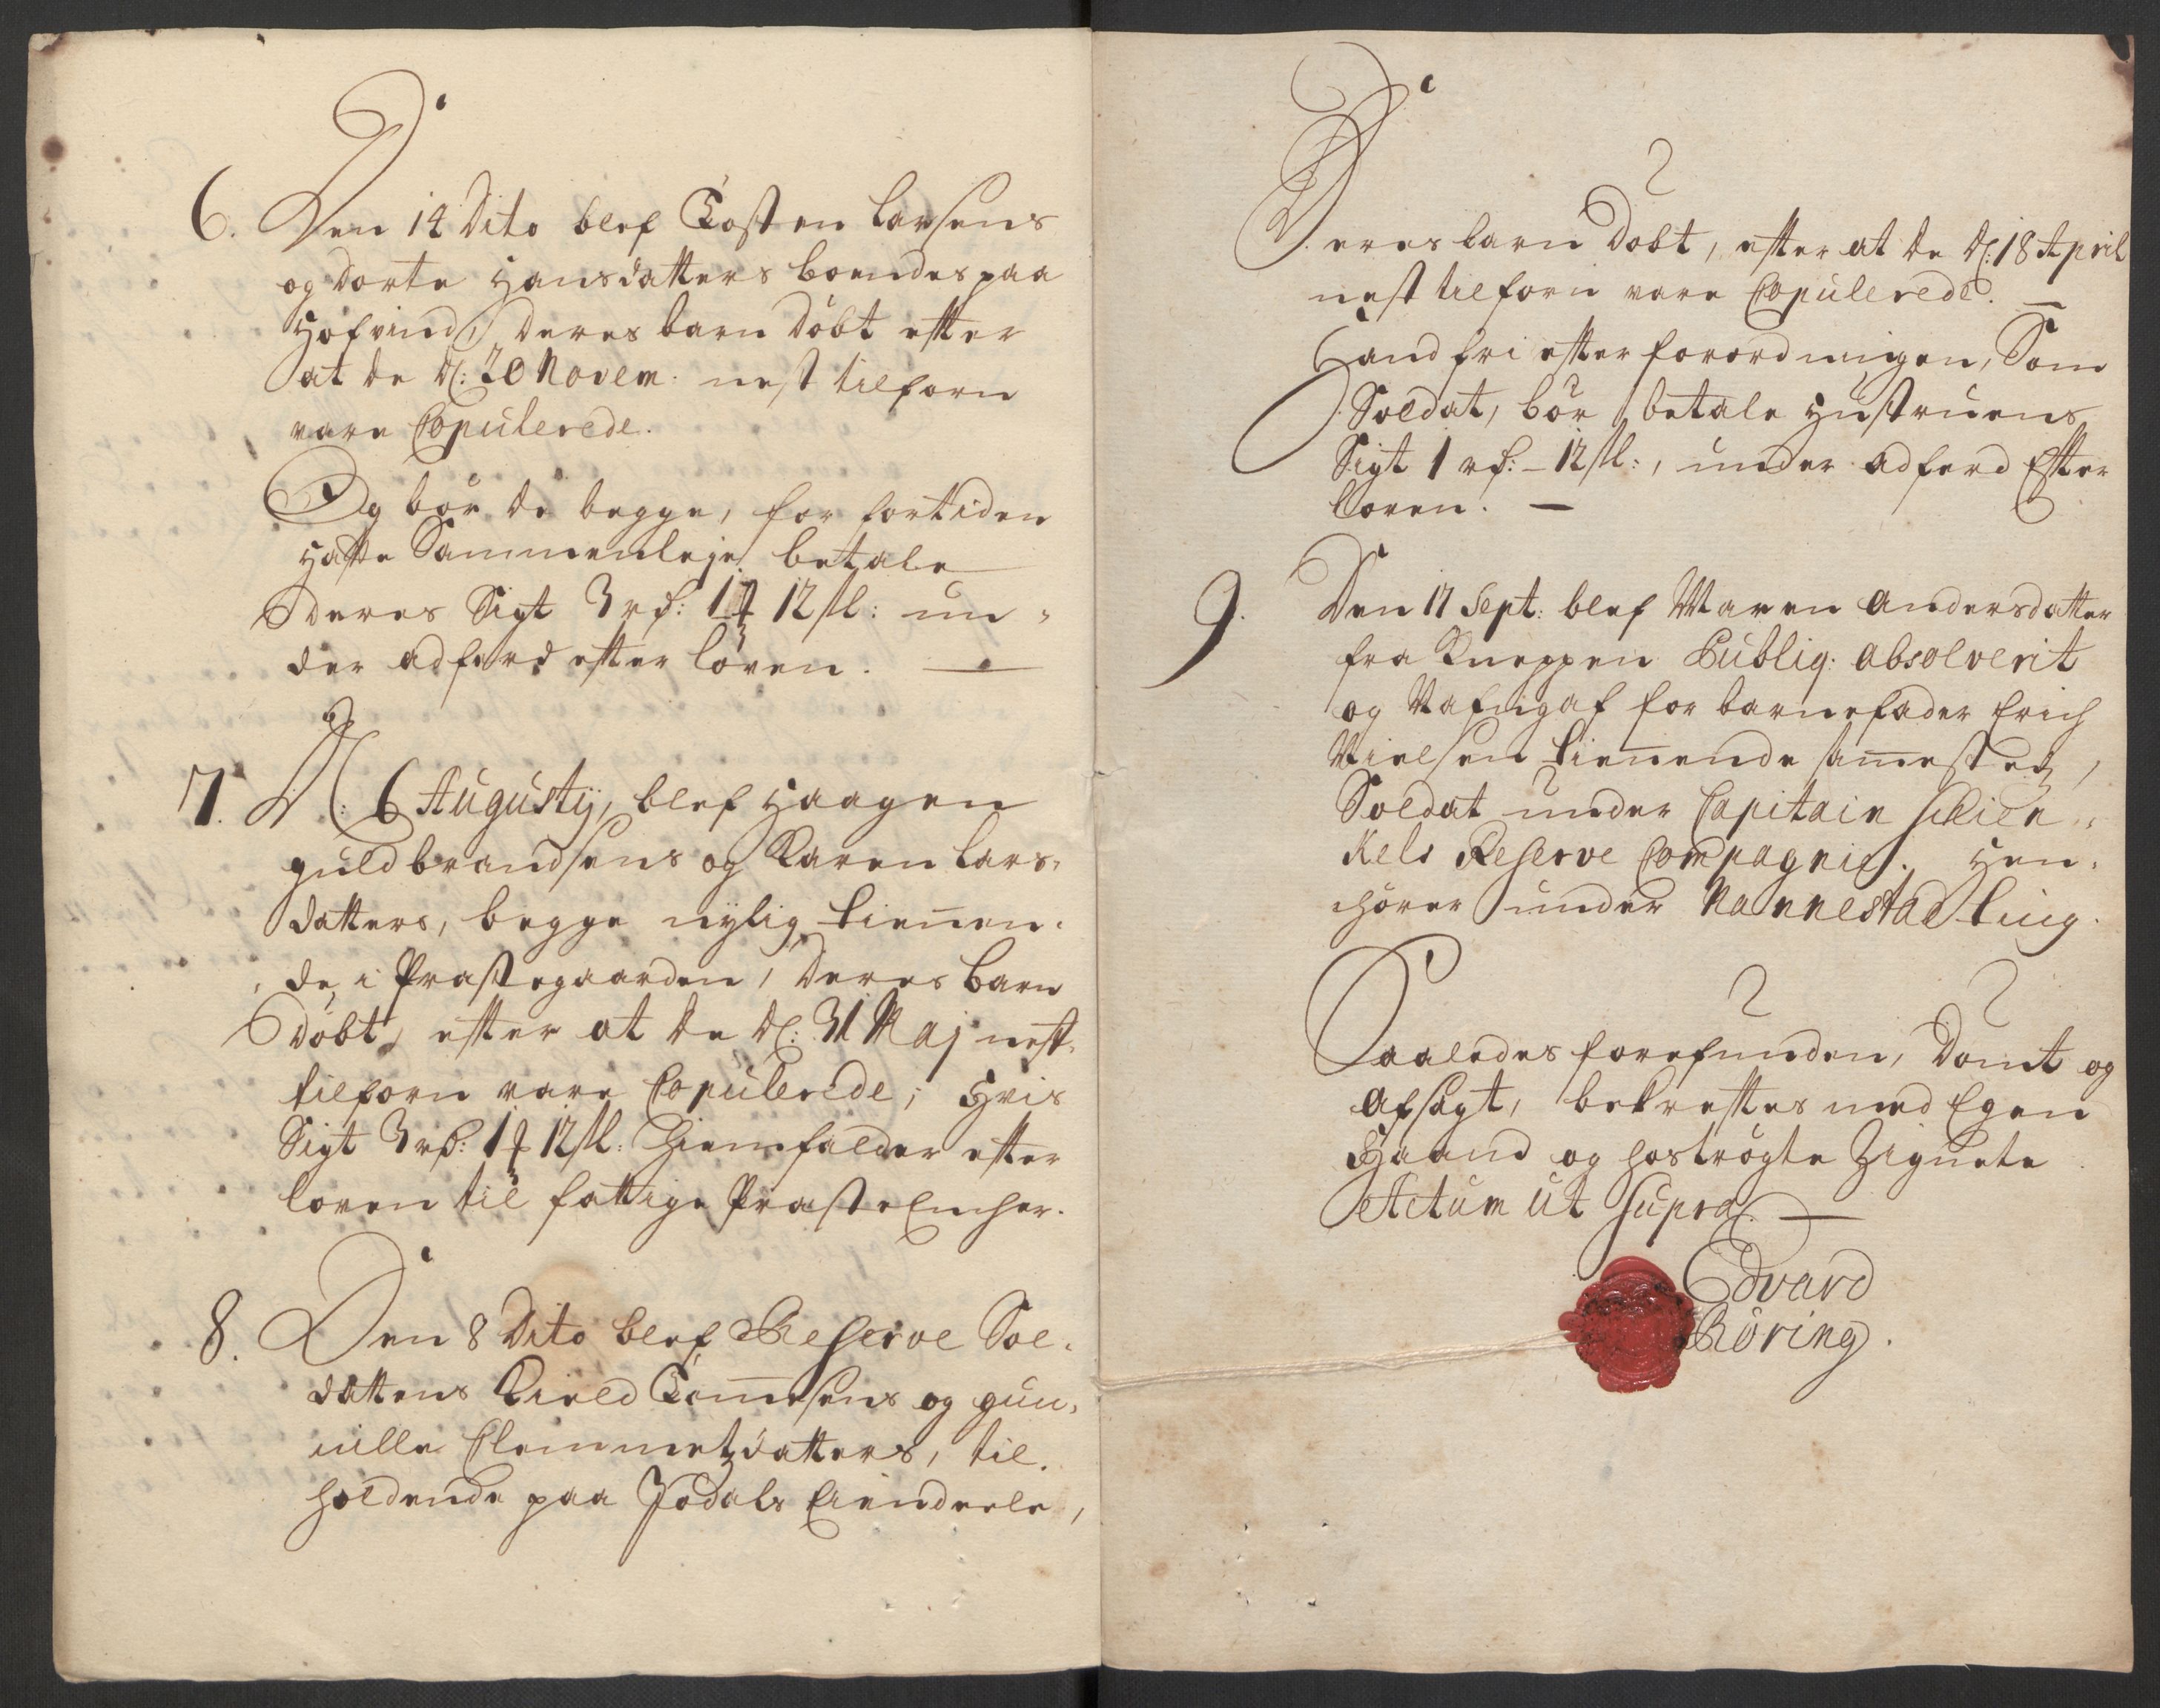 6. Den 14 Dito blef Tosten Larsens
og Dorte Hansdatters boendes paa
Hofvind, deres barn döbt efter
at de d: 20 Novem: nest tilforn
vare Copulerede.
Og bör de begge, for fortiden
hafte Sammenleje betale
deres Sigt 3 rd: 1 ß 12 sl: un-
der adferd efter loven. —
7. D: 6 Augustij, blef Haagen
guldbrandsens og Karen Lars-
datters, begge nylig tienen-
de i Præstegaarden, deres Barn
döbt, efter at de d: 31 Maj nest
tilforn vare Copulerede; Hvis
Sigt 3 rd: 1 ß 12 sl: hiemfalder efter
loven til fattige Præste Encher.
8. Den 8 Dito blef Reserve Sol-
dattens Kield Tommesens og gun-
nille Clemmetzdatters, til-
holdende paa Jødals Eiendeele,
Deres barn döbt, efter at de d: 18 April
nest tilforn vare Copulerede. —
Hand fri efter forordningen, Som
Soldat, bör betale Hustruens
Sigt 1 rd: - 12 sl:, under adferd Efter
loven. —
9. Den 17 Sept: blef Maren Andersdatter
fra Kneppen Publiq: absolverit
og Nafngaf for barnefader Erich
Nielsen tienende samested,
Soldat under Capitain Schin-
kels Reserve Compagnie. Hen-
hörer under Nannestad ting.
Saaledes forefunden, Dömt og
Afsagt, bekreftes med Egen
Haand og hoströgte Zignete
Actum ut Supra. —
Edvard
Röring.